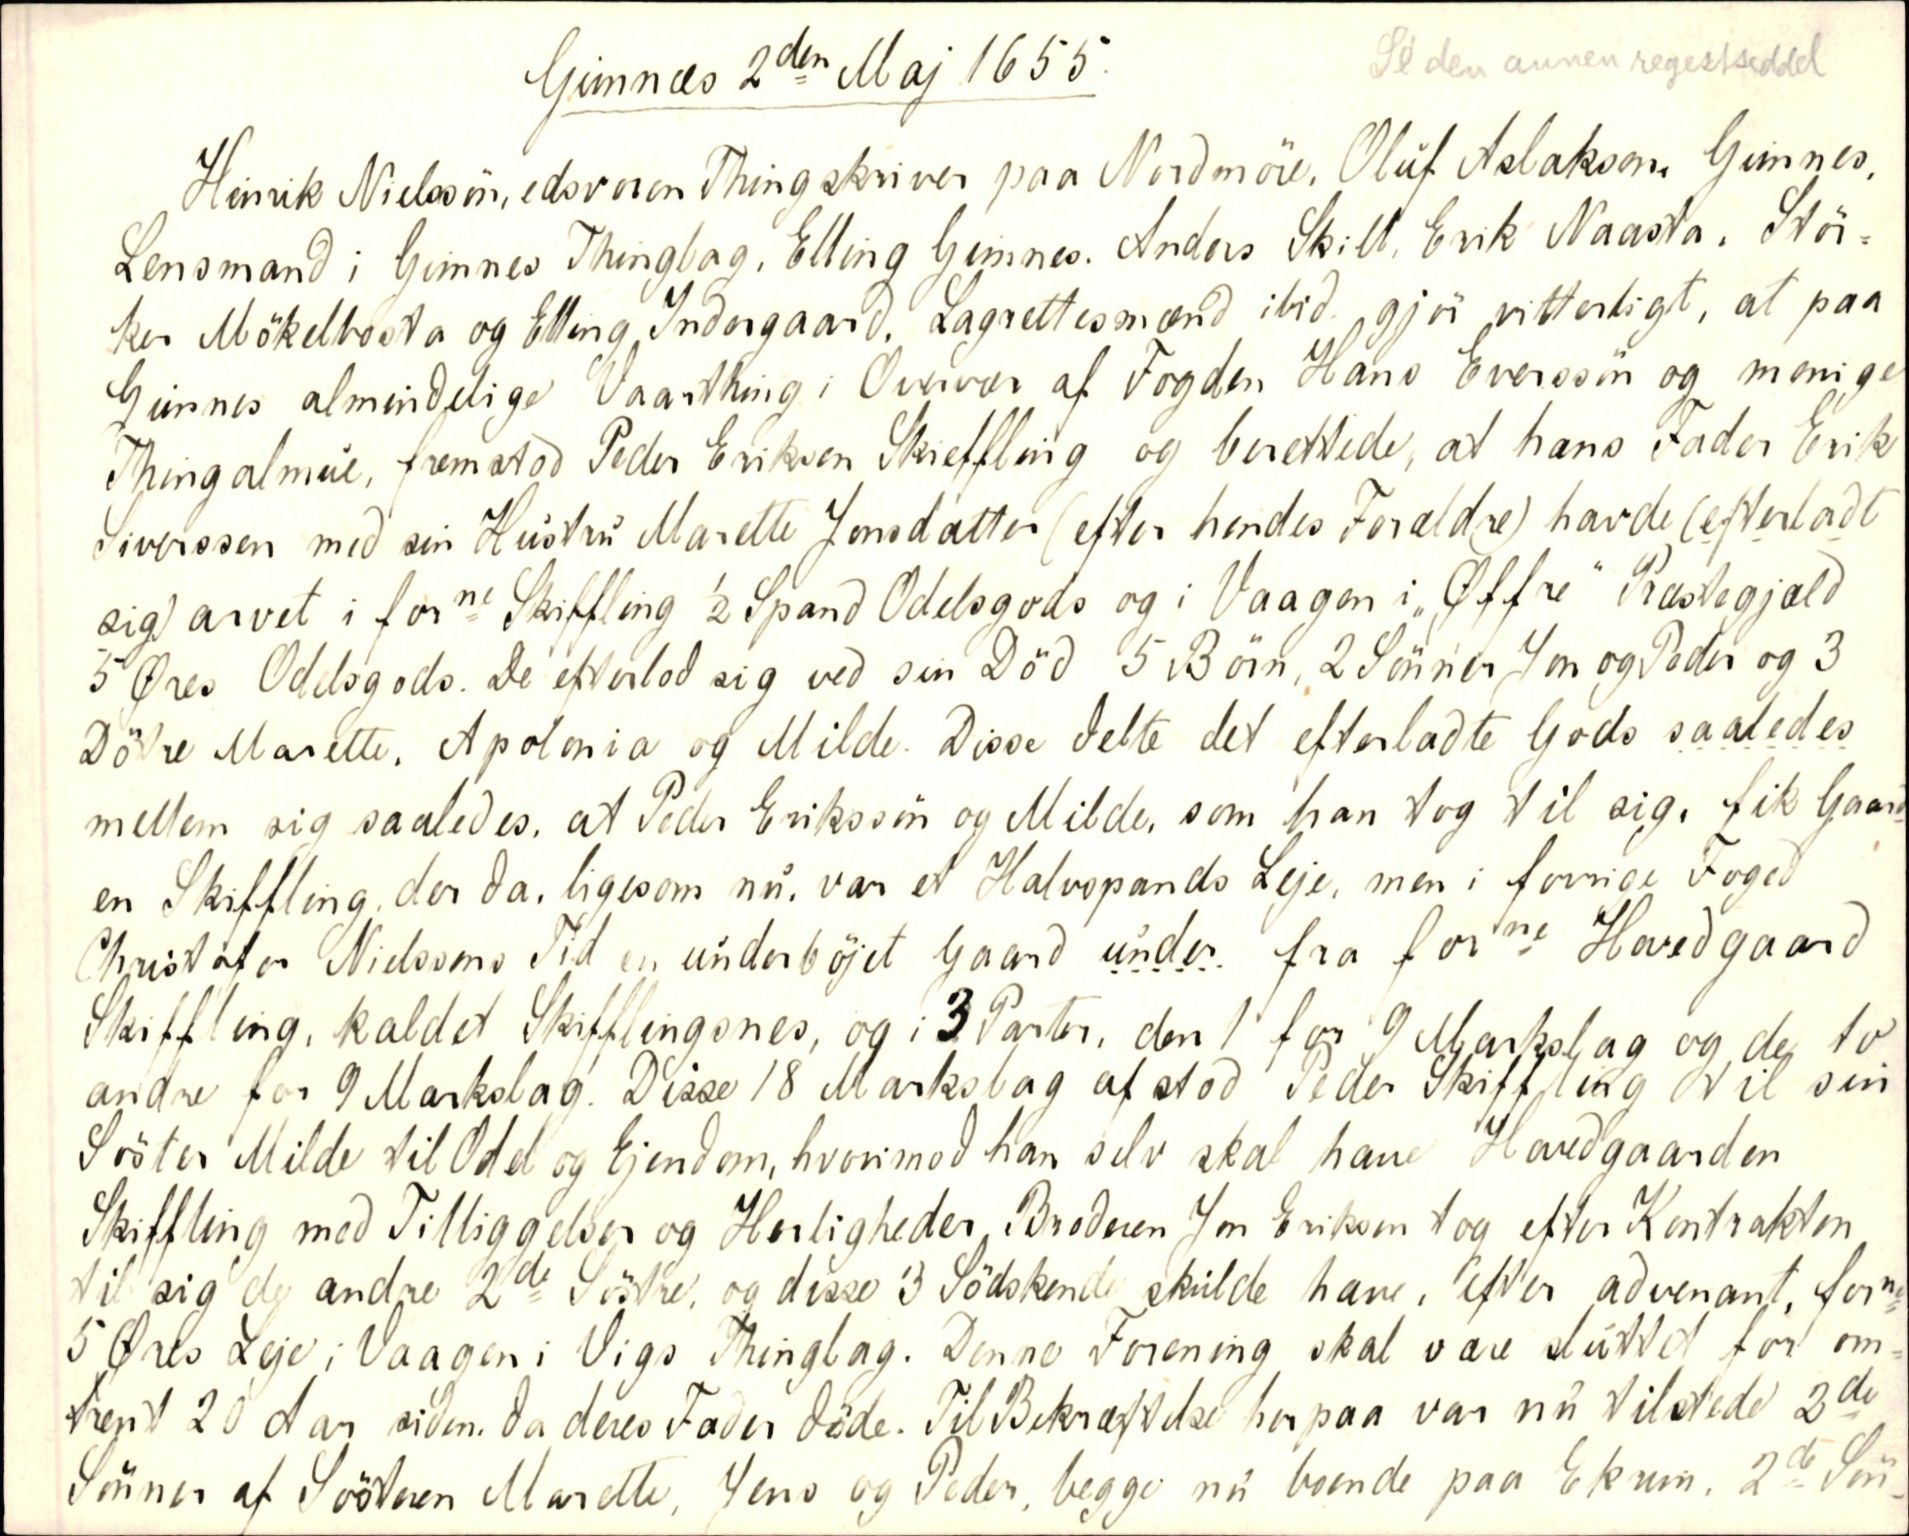 Gimnæs 2den Maj 1655.
Se den annen regestseddel
Henrik Nielssön, edsvoren Thingskriver paa Nordmöre, Oluf Aslaksen Gimnes,
Lensmand i Gimnes Thinglag, Elling Gimnes. Anders Skill, Erik Naasta, Stör-
ker Mökelbosta og Elling Indergaard, Lagrettesmænd ibid. gjör vitterligt, at paa
Gimnes almindelige Vaarthing i Overvær af Fogden Hans Everssön og menige
Thingalmue, fremstod Peder Eriksen Skieffling og berettede, at hans Fader Erik
Siverssen med sin Hustru Marette Jonsdatter (efter hendes Forældre) havde (efterladt
sig) arvet i forne Skiffling ½ Spand Odelsgods og i Vaagen i „Øffre“ Præstegjæld
5 Øres Odelsgods. De efterlod sig ved sin Död 5 Börn, 2 Sönner Jon og Peder og 3
Dötre Marette, Apolonia og Milde. Disse delte det efterladte Gods saaledes
mellem sig saaledes, at Peder Erikssön og Milde, som han tog til sig, fik Gaard-
en Skiffling, der da, ligesom nu, var et Halvspands Leje, men i forrige Foged
Christofer Nielssens Tid en underböjet Gaard under fra forne Hovedgaard
Skiffling, kaldet Skifflingsnes, og i 3 Parter, den 1 for 9 Markslag og de to
andre for 9 Markslag. Disse 18 Markslag afstod Peder Skiffling til sin
Söster Milde til Odel og Ejendom, hvorimod han selv skal have Hovedgaarden
Skiffling med Tilliggelser og Herligheder. Broderen Jon Eriksen tog efter Kontrakten
til sig de andre 2de Söstre, og disse 3 Södskende skulde have, efter advenant, forne
5 Øres Leje i Vaagen i Vigs Thinglag. Denne Forening skal være sluttet for om-
trent 20 Aar siden, da deres Fader döde. Til Bekræftelse herpaa var nu tilstede 2de
Sönner af Sösteren Marette, Jens og Peder, begge nu boende paa Ekrem, 2de Sön-